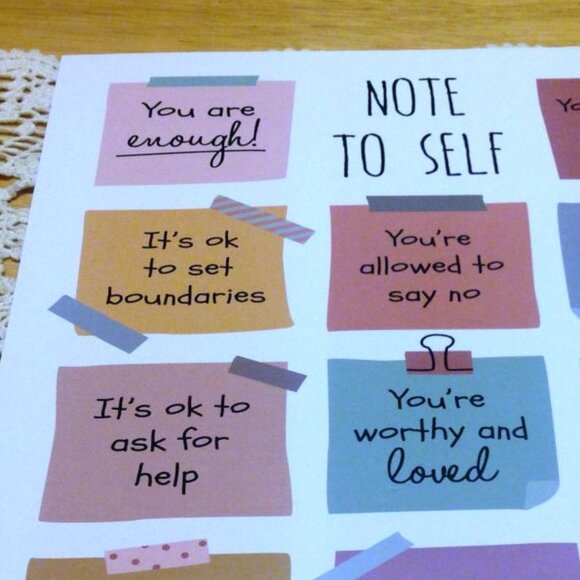 You are
enough!
NOTE
TO SELF
It's ok
to set
boundaries
You're
allowed to
say no
It's ok to
ask for
help
You're
worthy and
loved